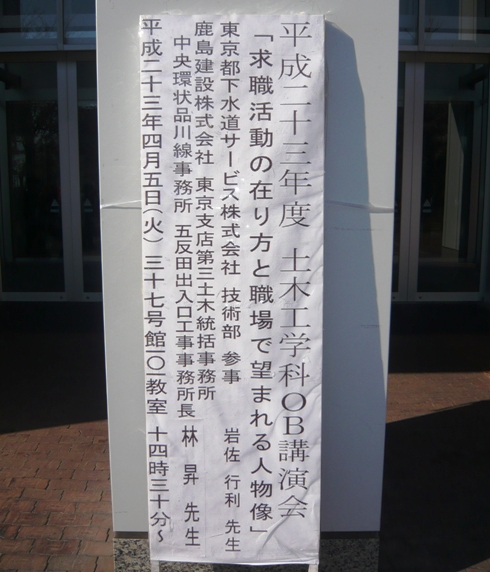 平成二十三年度 土木工学科OB講演会
「求職活動の在り方と職場で望まれる人物像」
東京都下水道サービス株式会社 技術部 参事 岩佐 行利 先生
鹿島建設株式会社 東京支店第三土木統括事務所
中央環状品川線事務所 五反田出入口工事事務所長 林 昇 先生
平成二十三年四月五日(火) 三十七号館一〇一教室 十四時三十分〜